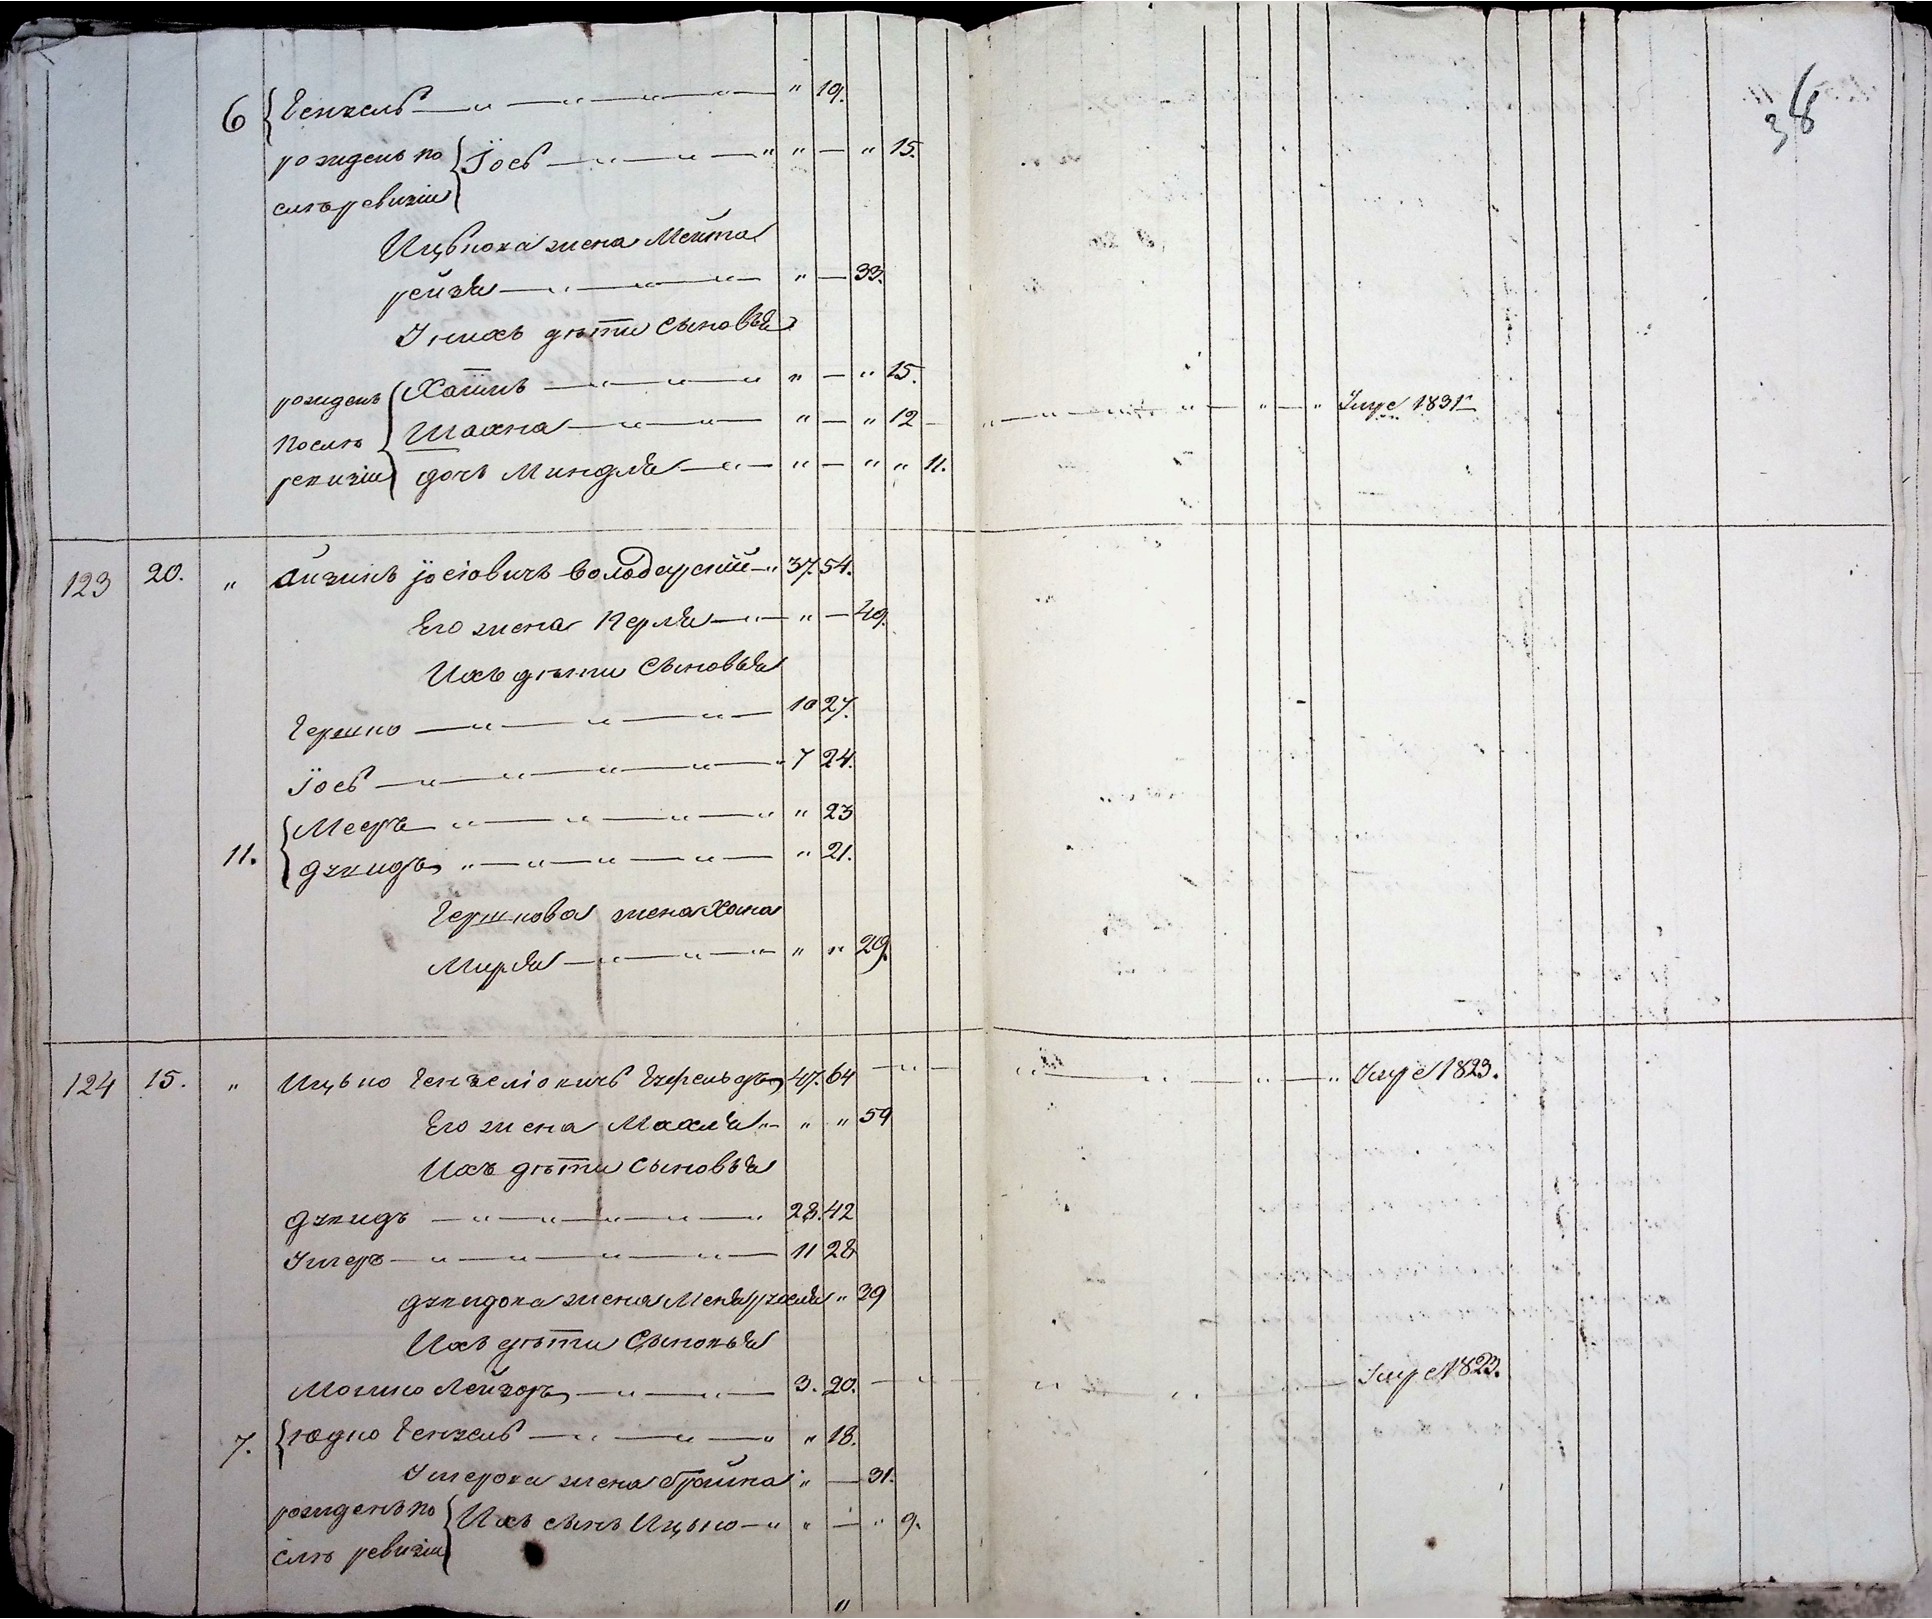 38
6 Гензель " 19.
рожденъ по Іось " " — " 15.
слѣ ревизіи
Ицькова жена Мейта
рейзя " — 33.
У нихъ дѣти сыновья
рожденъ Хаимъ " — " 15.
после Шахна " — " 12 — " — " Умре 1831
ревизіи дочь Миндля " — " " 11.
123 20. " Айзикъ Іосіовичъ Володарскій 37. 54.
Его жена Перля " — 49.
Ихъ дѣти сыновья
Гершко 10 27.
Іось 7 24.
Мееръ " 23
11. Дувидъ " 21.
Гершкова жена Хана
Мирля " " 29.
124 15. " Ицько Гензеліовичъ 47. 64 Умре 1823.
Его жена Махля " " 59
Ихъ дѣти сыновья
Дувидъ 28. 42
Умеръ 11 28
Дувидова жена " 39
Ихъ дѣти сыновья
Мошко Лейзоръ 3. 20. Умре 1823.
7. Юдко Гензель " 18.
жена Брайна " — 31.
рожденъ по Ихъ сынъ Ицько " — " 9.
слѣ ревизіи
"